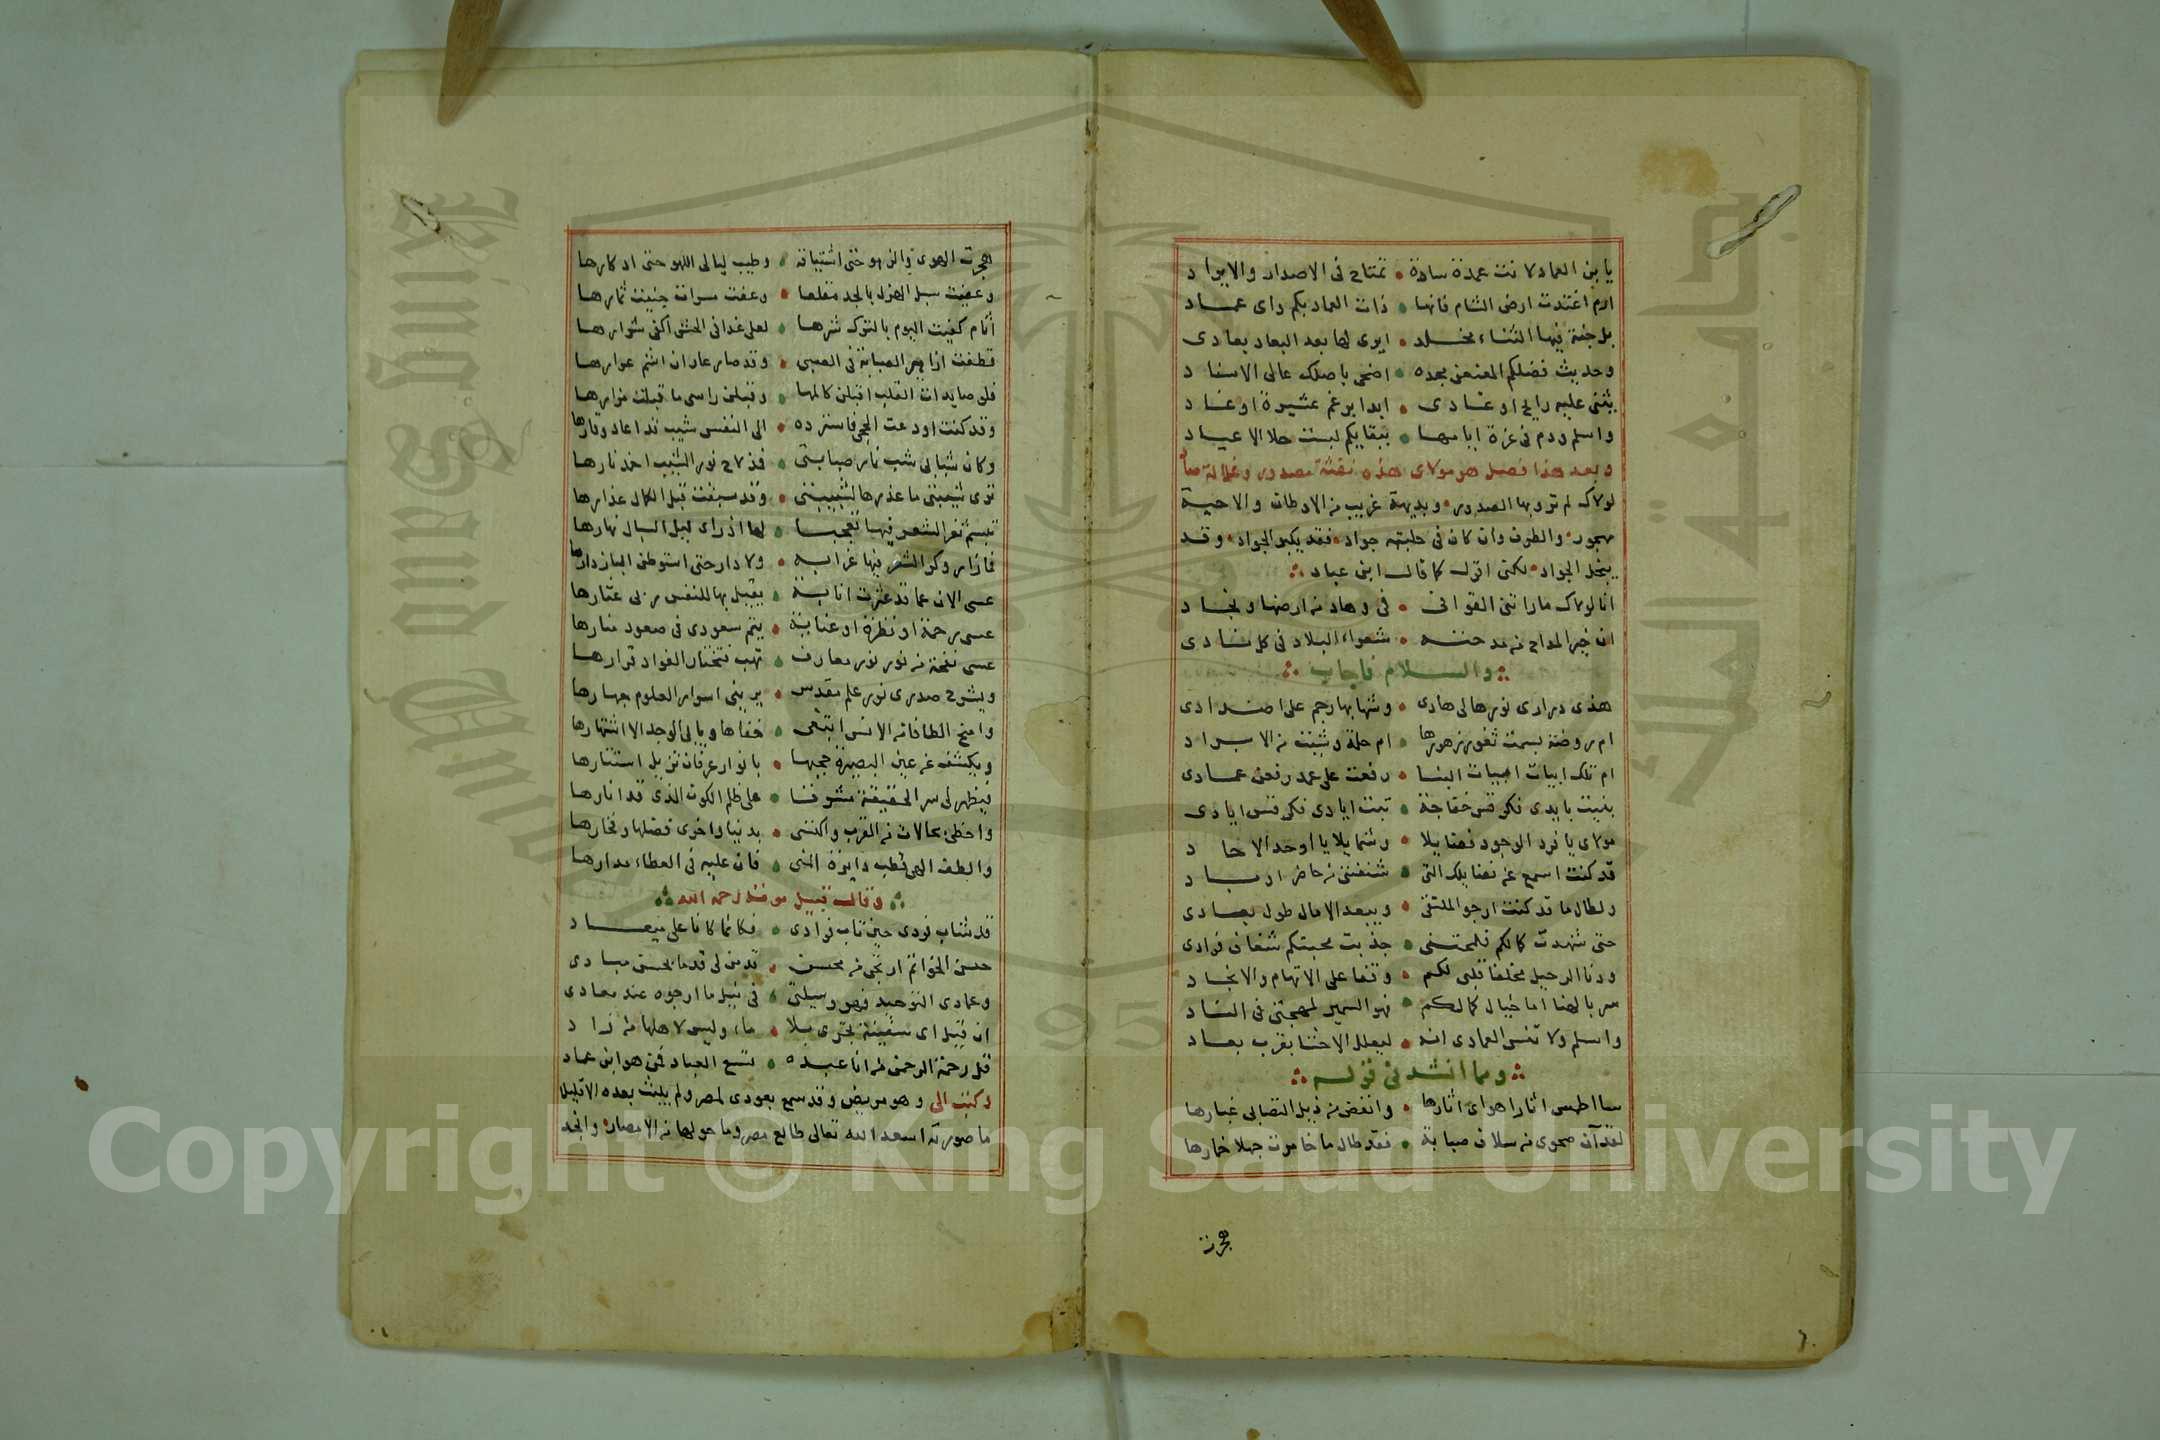 يا بن العماد لانت عمدة سادة • تمتاح في الاصدار والايراد
ارم اغتدت ارض الشام فانها • ذات العماد بكم راى عماد
بل جنة فيها الثناء مخلد • ايوى لها بعد البعاد بعادى
وحديث فضلكم المعنعن مجده • اضحى باصلك عالى الاسناد
يثنى عليه رايح او غادى • ابدا برغم عشيرة او عناد
واسلم ودم فى عزة ايامها • ببقايكم لبست حلا الاعياد
وبعد هذا فصل هو مولاى هذه نفثة مصدور وغلالة
لولاك لم تروبها الصدور • وبديهة غريب من الاوطان والاحبة
مهجور • والطرف وان كان فى حلبته جواد • فقد يكبو الجواد • وقد
يبخل الجواد • لكنى اقول كما قال ابن عباد
انا لولاك ما راتنى القوافى • فى وهاد من ارضها ونجاد
ان خير المداح من مدحته • شعراء البلاد فى كل نادى
والسلام فاجاب
هذى درارى نورها لى هادى • وشهابها رجم على اضدادى
ام روضة بسمت ثغور زهورها • ام حلة وشيت من الابراد
ام تلك ابيات ابيات البنا • رفعت على عمد رفعن عمادى
بنيت بايدى فكر قس خفاجة • تبت ايادى فكر قس ايادى
مولاى يا فرد الوجود فضايلا • وشمايلا يا اوحد الاحاد
قد كنت اسمع عن فضايلك التى • شنفننى من حاضر او باد
ولطال ما قد كنت ارجو الملتقى • ويبعد الامال طول بعادى
حتى شهدت كمالكم فلمحتنى • جذبت محبتكم شغاف فوادى
ودنا الرحيل مخلفا قلبى لكم • وقفا على الاتهام والانجاد
سر بالهنا اما خيال كمالكم • فهو السمير لمهجتى فى الناد
واسلم ولا تنس العمادى انه • ليعلل الاحشا بقرب بعاد
ومما انشدنى قوله
سااطمس اثار اهواى اثارها • وانفض من ذيل التصابى غبارها
لقد آن صحوى من سلاف صبابة • فقد طال ما خامرت جهلا خمارها
هجرت
هجرت الهوى والزهو حتى اشتياقه • وطيب ليالى اللهو حتى ادكارها
وعفيت سبل الهزل بالجد مقلعا • وعفت مسرات جنيت ثمارها
أثام كفيت اليوم بالترك شرها • لعلى غدا فى الحشر اكفى شرارها
قطفت ازاهير الصبابة فى الصبى • وقد صار عارا ان اشم عرارها
فلو صايدات القلب اقبلن كالمها • وقبلن راسى ما قبلت مزارها
وقد كنت اودعت الحجى فاسترده • الى النفس شيب قد اعاد وقارها
وكان شبابى شب نار صبابتى • فذ لاح نور الشيب اخمد نارها
نوى شيبتى ما عذرها لشبيبتى • وقد سبقت قبل الكمال عذارها
تبسم ثغر الشعر فيها تعجبا • لها اذ راى ليل السبال نهارها
فما زار وكر الشعر فيها غرابه • ولا دار حتى استوطن الباز دارها
عسى الان عما قد عثرت انابة • يقيل بها للنفس ربى عثارها
عسى رحمة او نظرة او عناية • يتم سعودى فى صعود منارها
عسى نفحة من نور نور معارف • تهب فتختار الفواد قرارها
ويشرح صدرى نور علم مقدس • يرينى اسرار العلوم جهارها
وامنح الطافا من الانس ابتغى • خفاها ويابى الوجد الا اشتهارها
ويكشف عن عين البصيرة حجبها • بانوار عرفان تزيل استتارها
فيظهر لى سر الحقيقة مشرفا • على ظلم الكون الذى قد انارها
واحظى بحالات من القرب واكتسى • بدنيا واخرى فضلها وفخارها
والطف الهى قطب دايرة المنى • فان عليه فى العطاء مدارها
وقال قبيل موته رحمه الله
قد شاب فودى حين تاب فوادى • فكانما كانا على ميعاد
حسن الخواتم ارتجى من محسن • قد من لى قدما بحسن مبادى
وعمادى التوحيد فهو وسيلتى • فى نيل ما ارجوه عند معادى
ان قيل اى سفينة تجرى بلا • ماء وليس لاهلها من زاد
قل رحمة الرحمن من انا عبده • تسع العباد فمن هو ابن عماد
وكتب الى وهو مريض وقد سمع بعودى لمصر ولم يلبث بعده الا قليلا
ما صورته اسعد الله تعالى طالع مصر وما حولها من الامصار • وانجد